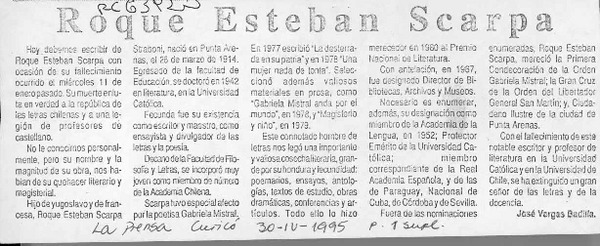 RC639213
Roque Esteban Scarpa
Hoy debemos escribir de
Roque Esteban Scarpa con
ocasión de su fallecimiento
ocurrido el miércoles 11 de
enero pasado. Su muerte enlu-
ta en verdad a la república de
las letras chilenas y a una
legión de profesores de
castellano.
No le conocimos personal-
mente, pero su nombre y la
magnitud de su obra, nos ha-
bían de su quehacer literario y
magisterial.
Hijo de yugoslavo y de fran-
cesa, Roque Esteban Scarpa
Straboni, nació en Punta Are-
nas, el 26 de marzo de 1914.
Egresado de la facultad de
Educación, se doctoró en 1942
en literatura, en la Universidad
Católica.
Fecunda fue su existencia
como escritor y maestro, como
ensayista y divulgador de las
letras y la poesía.
Decano de la Facultad de Filo-
sofía y Letras, se incorporó muy
joven como miembro de número
de la Academia Chilena.
Scarpa tuvo especial afecto
por la poetisa Gabriela Mistral.
En 1977 escribió "La desterrada
en su patria" y en 1978 "Una
mujer nada de tonta". Selec-
cionó además valiosos
materiales en prosa, como
"Gabriela Mistral anda por el
mundo", en 1978, y "Magisterio
y niño", en 1979.
Este connotado hombre de
letras nos legó una importante
y valiosa cosecha literaria, gran-
de por su hondura y fecundidad:
poemarios, ensayos, antolo-
gías, textos de estudio, obras
dramáticas, conferencias y
artículos. Todo ello lo hizo
merecedor en 1980 al Premio
Nacional de Literatura.
Con antelación, en 1967,
fue designado Director de Bi-
bliotecas, Archivos y Museos.
Necesario es enumerar,
además, su designación como
miembro de la Academia de la
Lengua, en 1952; Profesor
Emérito de la Universidad
Católica; miembro
correspondiente de la Real
Academia Española, y de las
de Paraguay, Nacional de
Cuba, de Córdoba y de Sevilla.
Fuera de las nominaciones
enumeradas, Roque Esteban
Scarpa, mereció la Primera
Condecoración de la Orden
Gabriela Mistral; la Gran Cruz
de la Orden del Libertador
General San Martín; y, Ciuda-
dano Ilustre de la ciudad de
Punta Arenas.
Con el fallecimiento de este
notable escritor y profesor de
literatura en la Universidad
Católica y en la Universidad de
Chile, se ha extinguido un gran
señor de las letras y de la
docencia.
José Vargas Badilla.
La Prensa Curicó 30-IV-1995 p. 1 supl.